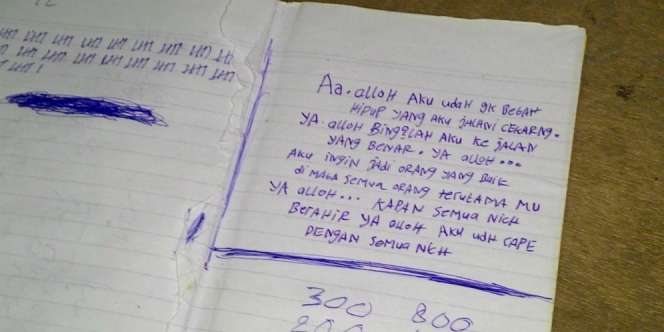 Aa. alloH AKU udaH gk BetaH
HiDUP YANG AKU JALANI CEKARNG.
YA. alloH BinggLAH AKU KE JALAN
YANG BENAR. YA alloH...
AKU ingin jadi ORANG YANG BaiK
di MATA SEMUA ORANG terUtAMA MU
YA alloH... KAPAN SEMUA NiCH
BerAHiR YA alloH AKU UdH CAPE
DENGAN SEMUA NiCH
300 800